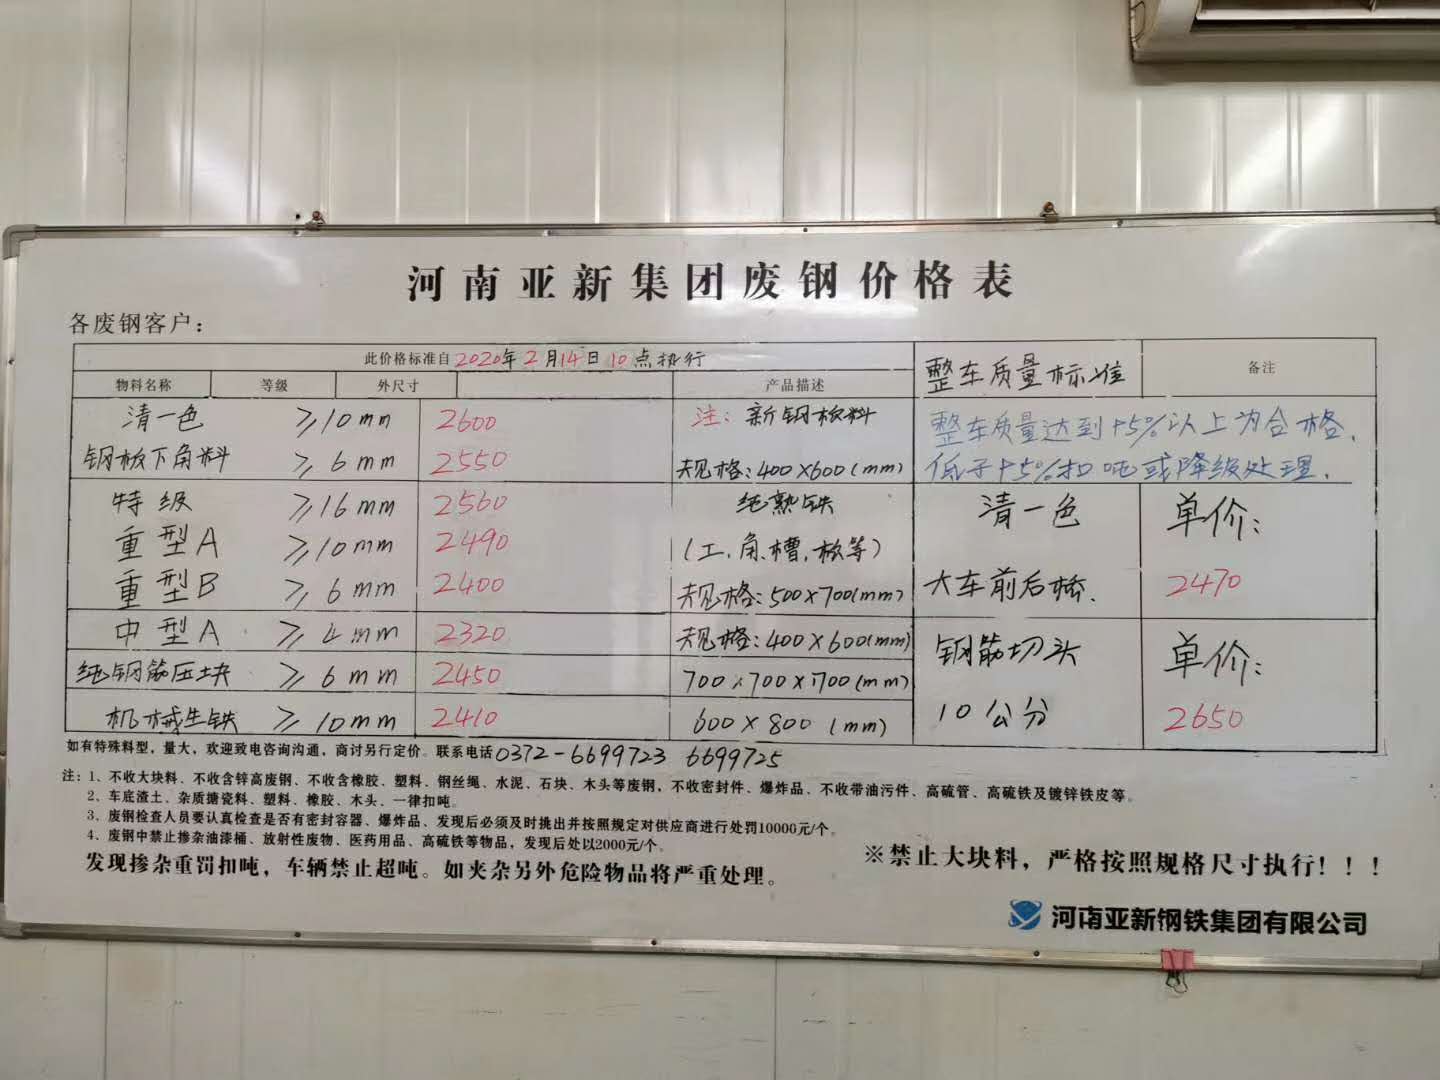 河南亚新集团废钢价格表
各废钢客户：
此价格标准自2020年2月14日10点执行 整车质量标准 备注
物料名称 等级 外尺寸 产品描述
清一色 ≥10mm 2600 注：新钢板料 整车质量达到+5%以上为合格，
钢板下角料 ≥6mm 2550 规格：400×600(mm) 低于+5%扣吨或降级处理．
特级 ≥16mm 2560 纯熟铁 清一色 单价：
重型A ≥10mm 2490 （工、角、槽、板等）
重型B ≥6mm 2400 规格：500×700(mm) 大车前后桥． 2470
中型A ≥4mm 2320 规格：400×600(mm) 钢筋切头 单价：
纯钢筋压块 ≥6mm 2450 700×700×700(mm)
机械生铁 ≥10mm 2410 600×800(mm) 10公分 2650
如有特殊料型，量大，欢迎致电咨询沟通，商讨另行定价。联系电话0372-6699723 6699725
注：1、不收大块料、不收含锌高废钢、不收含橡胶、塑料、钢丝绳、水泥、石块、木头等废钢，不收密封件、爆炸品、不收带油污件、高硫管、高硫铁及镀锌铁皮等。
2、车底渣土、杂质搪瓷料、塑料、橡胶、木头、一律扣吨。
3、废钢检查人员要认真检查是否有密封容器、爆炸品、发现后必须及时挑出并按照规定对供应商进行处罚10000元/个。
4、废钢中禁止掺杂油漆桶、放射性废物、医药用品、高硫铁等物品，发现后处以2000元/个。
发现掺杂重罚扣吨，车辆禁止超吨。如夹杂另外危险物品将严重处理。
※禁止大块料，严格按照规格尺寸执行！！！
河南亚新钢铁集团有限公司